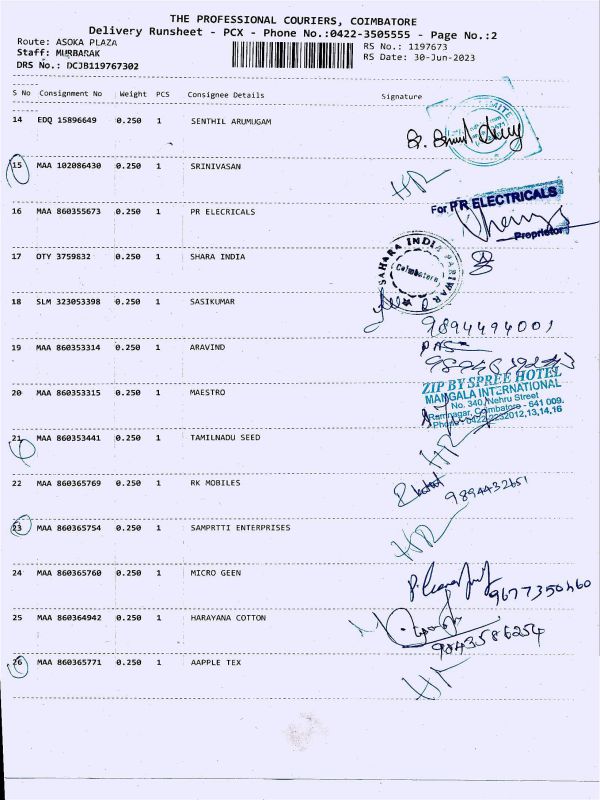 THE PROFESSIONAL COURIERS, COIMBATORE
Delivery Runsheet - PCX - Phone No.:0422-3505555 - Page No.:2
Route: ASOKA PLAZA
RS No.: 1197673
Staff: MURBARAK
RS Date: 30-Jun-2023
DRS No.: DCJB119767302
S No Consignment No Weight PCS Consignee Details Signature
14 EDQ 15896649 0.250 1 SENTHIL ARUMUGAM
15 MAA 102086430 0.250 1 SRINIVASAN
HR
16 MAA 860355673 0.250 1 PR ELECRICALS
For PR ELECTRICALS
Proprietor
17 OTY 3759832 0.250 1 SHARA INDIA
SAHARA INDIA PARIWAR
Coimbatore
18 SLM 323053398 0.250 1 SASIKUMAR
9894494001
19 MAA 860353314 0.250 1 ARAVIND
20 MAA 860353315 0.250 1 MAESTRO
ZIP BY SPREE HOTEL
MANGALA INTERNATIONAL
No. 340, Nehru Street
Ramnagar, Coimbatore - 641 009.
Phone: 0422-2232012,13,14,16
21 MAA 860353441 0.250 1 TAMILNADU SEED
HR
22 MAA 860365769 0.250 1 RK MOBILES
9894432651
23 MAA 860365754 0.250 1 SAMPRTTI ENTERPRISES
HR
24 MAA 860365760 0.250 1 MICRO GEEN
9677350460
25 MAA 860364942 0.250 1 HARAYANA COTTON
9843586254
26 MAA 860365771 0.250 1 AAPPLE TEX
HR